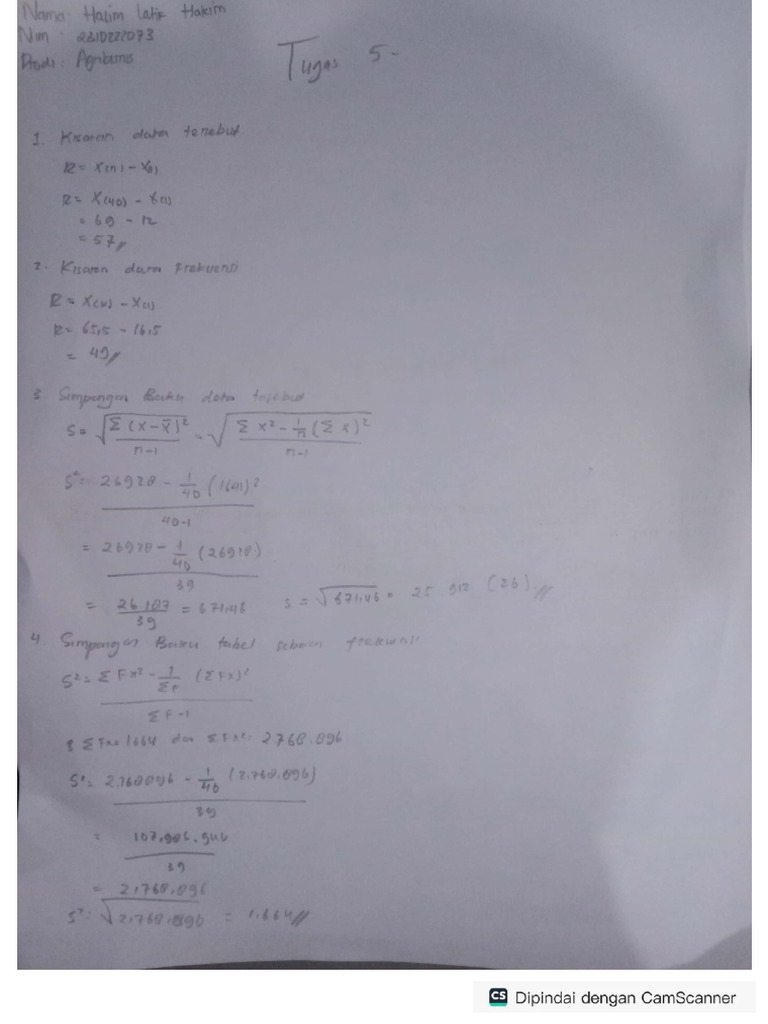 Nama : Halim Latif Hakim
Nim : 2310222073
Prodi : Agribisnis
Tugas 5-
1. Kisaran data tersebut
R = X(n) - X(1)
R = X(40) - X(1)
= 69 - 12
= 57//
2. Kisaran data Frekuensi
R = X(k) - X(1)
R = 65,5 - 16,5
= 49//
3 Simpangan Baku data tersebut
S = √Σ(X-X̄)²/n-1 = √Σx² - 1/n (Σx)²/n-1
S² = 26928 - 1/40 (1641)²
40-1
= 26928 - 1/40 (26928)
39
= 26.107/39 = 671,46 S = √671,46 = 25.912 (26).//
4. Simpangan Baku tabel sebaran frekuensi
S² = ΣFx² - 1/ΣF (ΣFx)²
ΣF-1
ΣFx = 1664 dan ΣFx² = 2.768.896
S² = 2.768.896 - 1/40 (2.768.896)
39
= 107,986.944
39
= 2.768.896
S² : √2.768.896 = 1.664//
CS Dipindai dengan CamScanner